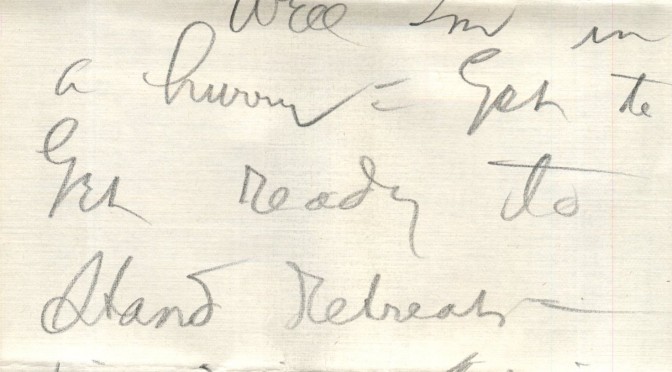 Well Im in
a hurry = Got to
Get ready to
Stand Retreat –